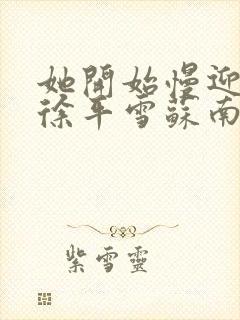 她開始慢迎
徐平雪蘇南
紫雪靈